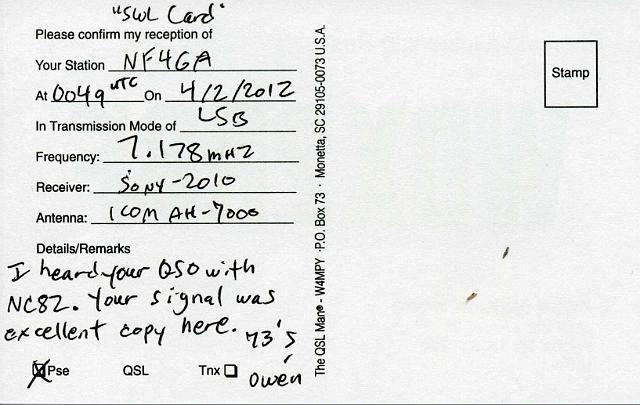 "SWL Card"
Please confirm my reception of
Your Station NF4GA
At 0049 UTC On 4/2/2012
In Transmission Mode of LSB
Frequency: 7.178 MHZ
Receiver: SONY-2010
Antenna: ICOM AH-7000
Details/Remarks
I heard your QSO with
NC8Z. Your signal was
excellent copy here. 73's
Owen
Pse QSL Tnx
The QSL Man® - W4MPY · P.O. Box 73 · Monetta, SC 29105-0073 U.S.A.
Stamp